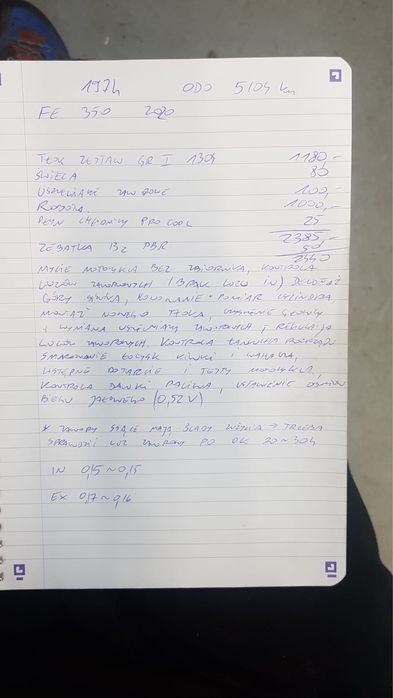 192h ODO 5104 km
FE 350 2020
TŁOK ZESTAW GR I 1304 1180,-
ŚWIECA 80
USZCZELNIACZE ZAWOROWE 100,-
ROBOCIZNA 1000,-
PŁYN CHŁODNICY PRO COOL 25
2385,-
ZĘBATKA 13z PBR 50
2440
MYCIE MOTOCYKLA BEZ ZBIORNIKA, KONTROLA
LUZÓW ZAWOROWYCH (BRAK LUZU IN) DEMONTAŻ
GÓRY SILNIKA, POMIAR CYLINDRA,
MONTAŻ NOWEGO TŁOKA, GŁOWICY
I WYMIANA USZCZELNIACZY ZAWOROWYCH I REGULACJA
LUZÓW ZAWOROWYCH, KONTROLA ŁAŃCUCHA ROZRZĄDU
SMAROWANIE ŁOŻYSK KIWKI I WAHACZA,
WSTĘPNE DOTARCIE I TESTY MOTOCYKLA,
KONTROLA DAWKI PALIWA, USTAWIENIE
BIEGU JAŁOWEGO (0,52V)
* ZAWORY SSĄCE MAJĄ ŚLADY ZUŻYCIA → TRZEBA
SPRAWDZIĆ LUZ ZAWOROWY PO OK 20~30h
IN 0,15~0,15
EX 0,17~0,16